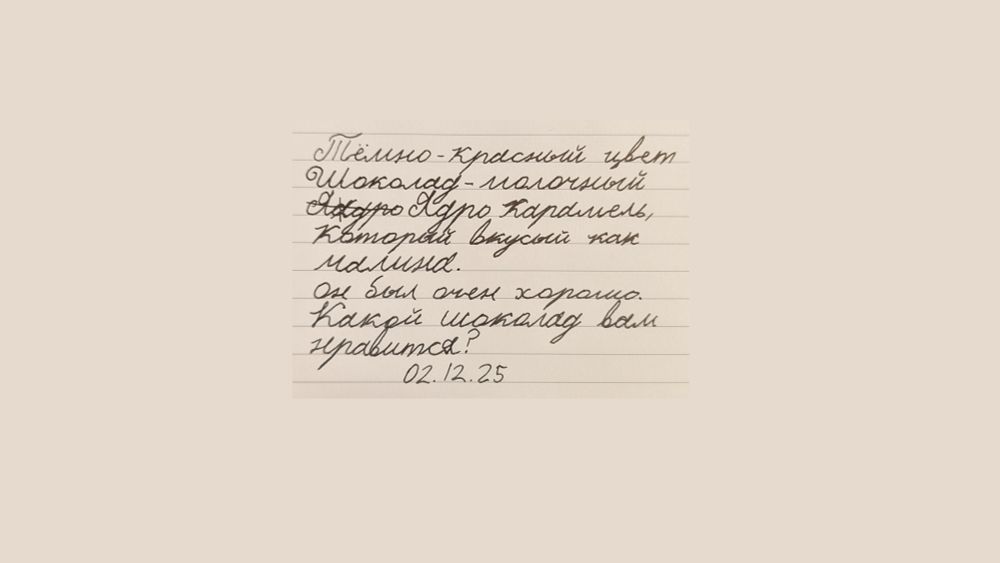 Тёмно-красный цвет
Шоколад-молочный
Ядро Ядро карамель,
Который вкусый как
малина.
он был очен хорошо.
Какой шоколад вам
нравится?
02.12.25